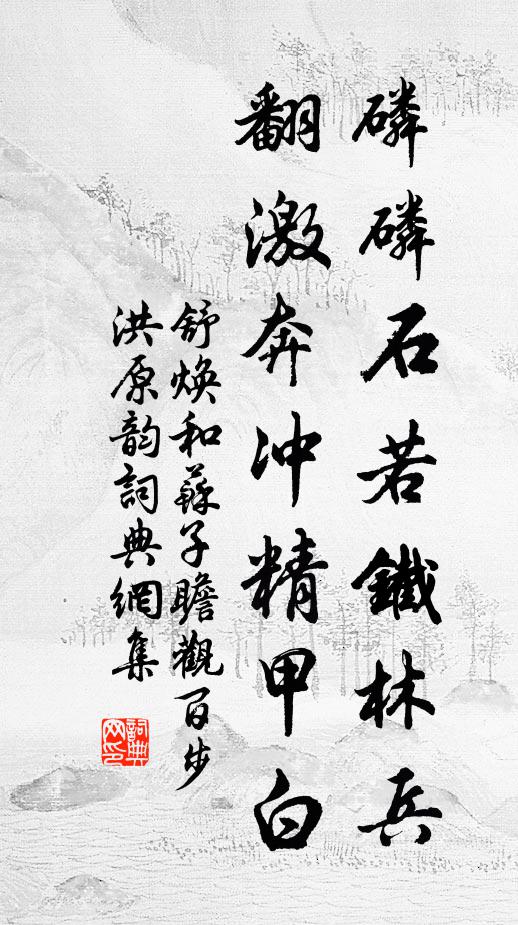 磷磷石若鐵林兵
翻激奔冲精甲白
舒煥和蘇子瞻觀百步
洪原韵詞典網集
詞典网印